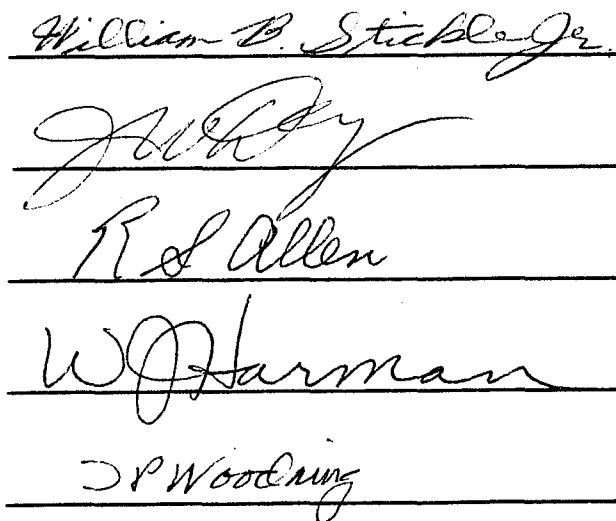 William B. Stickle Jr.
J W D
R S Allen
W J Harman
J P Woodring